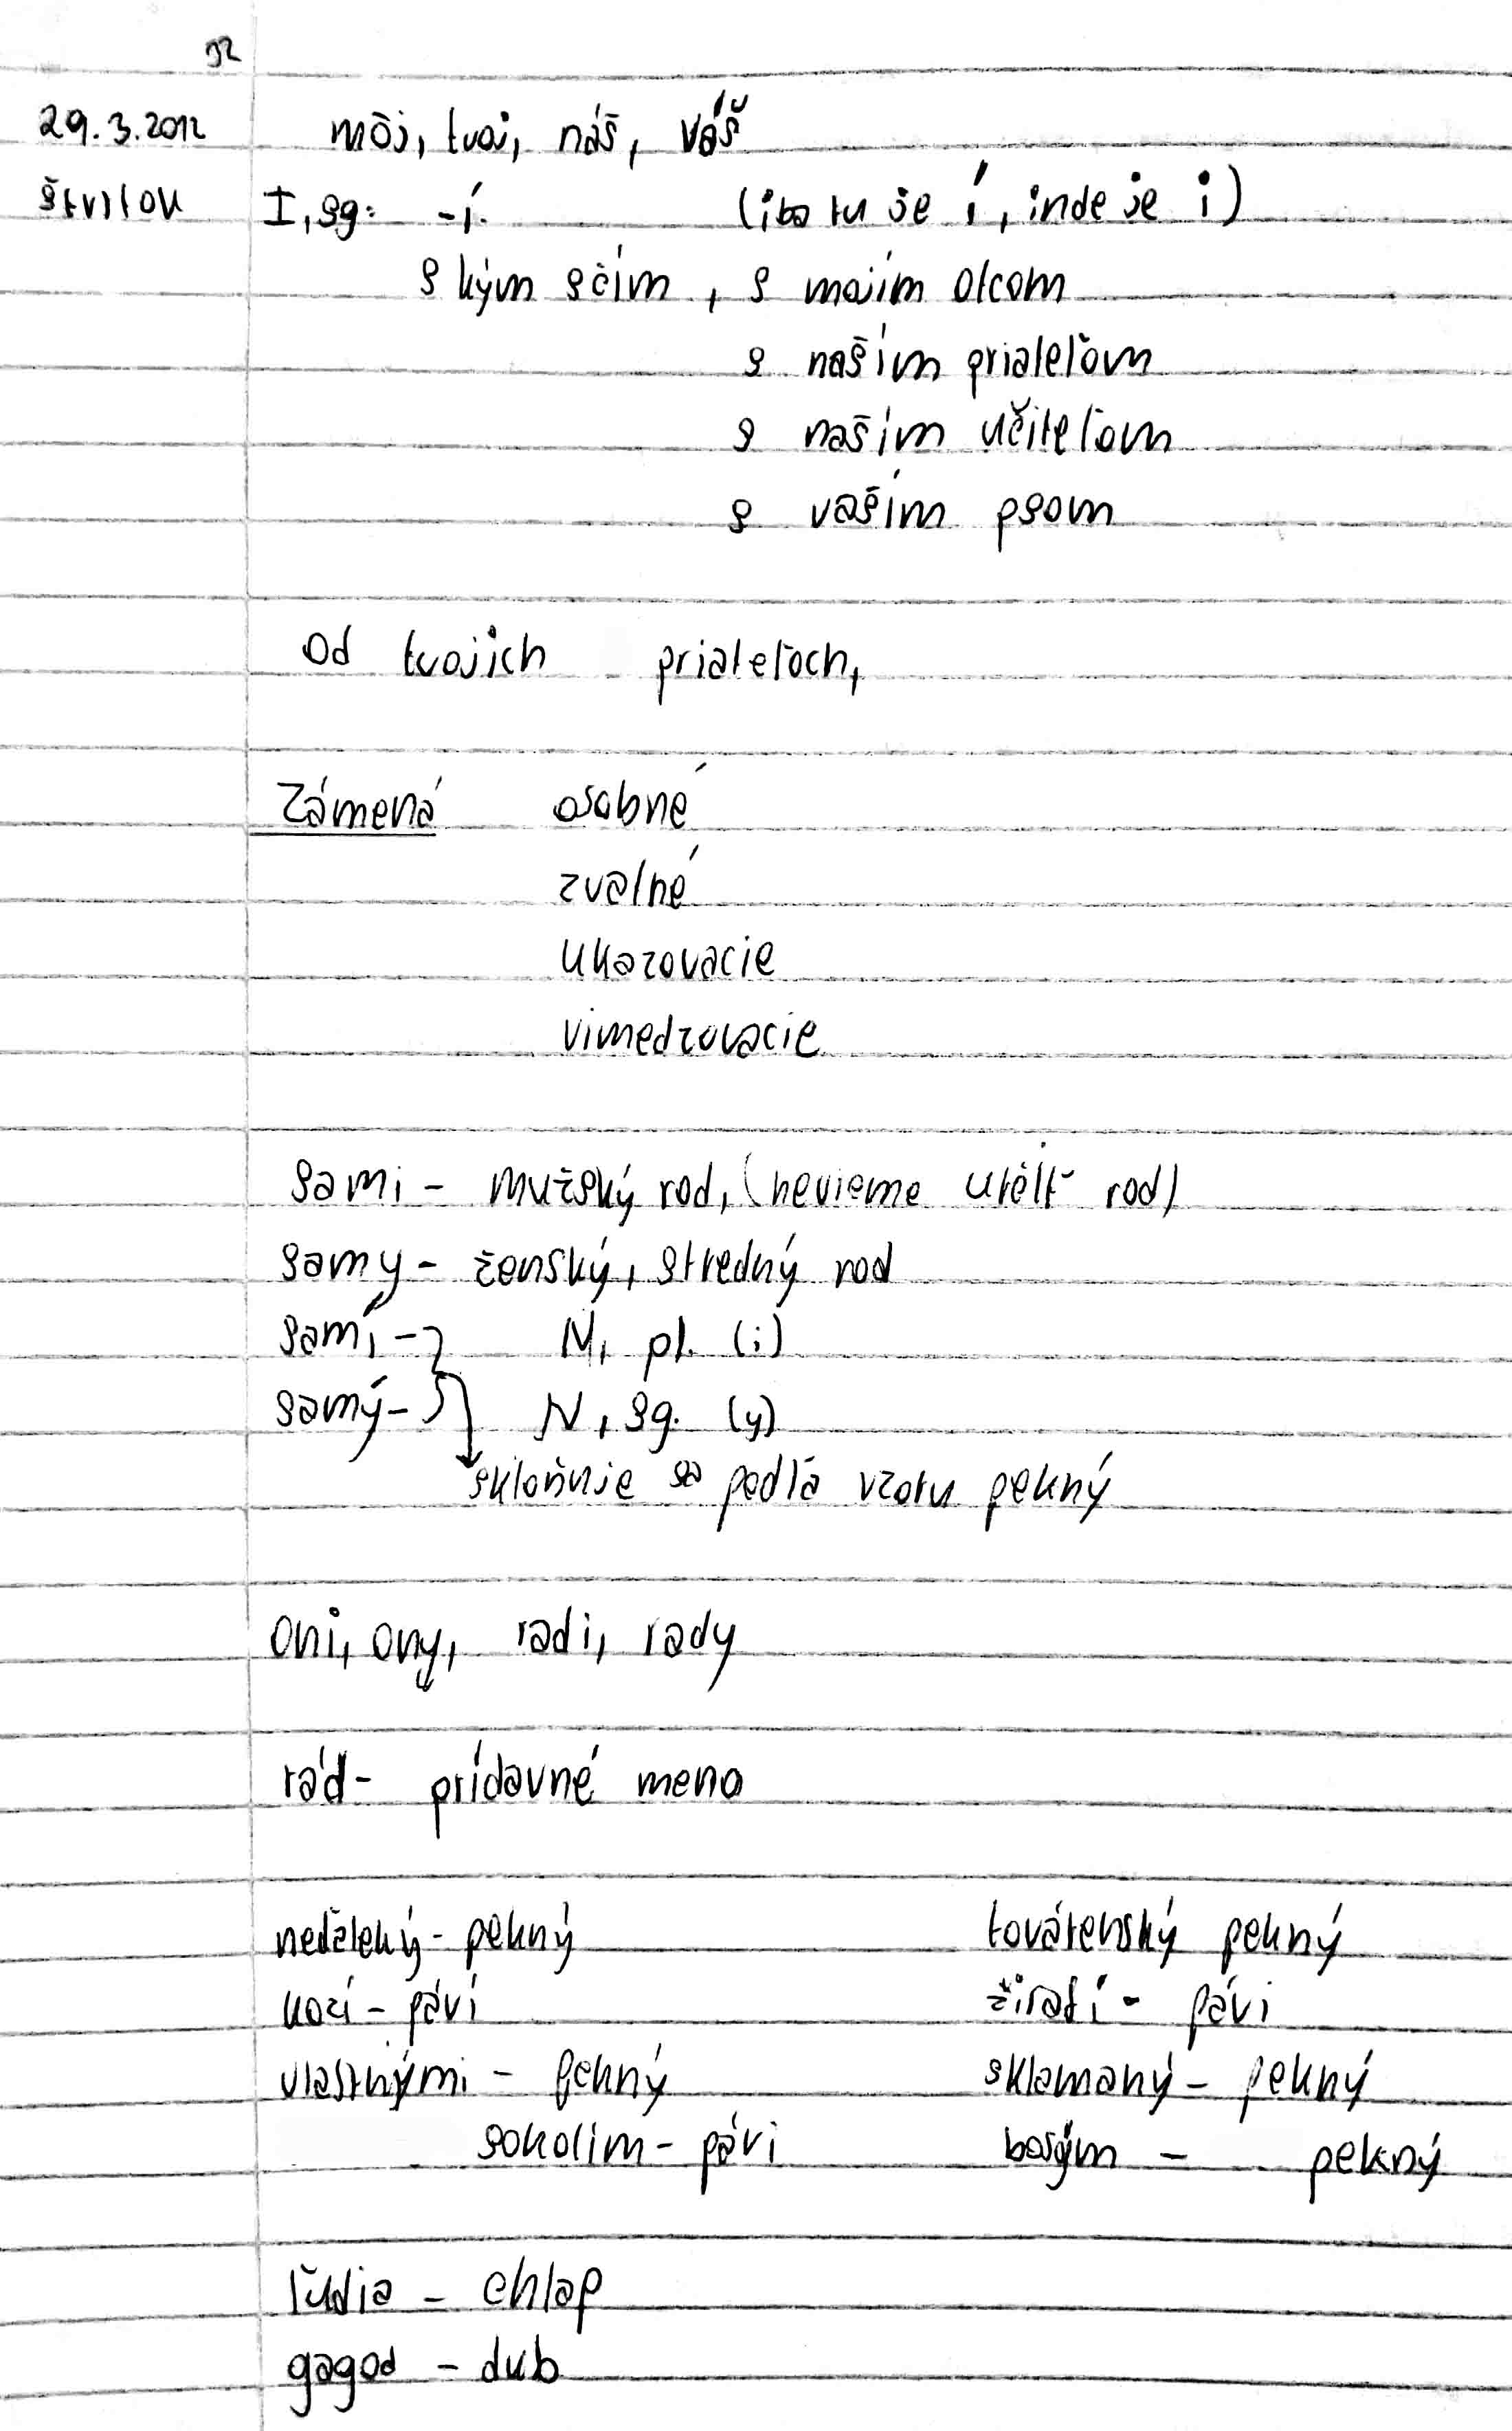 32
29.3.2012 môj, tvoj, náš, váš
štvrtok I, sg: -í. (iba tu je í, inde je i)
s kým s čím, s mojím otcom
s naším priateľom
s naším učiteľom
s vaším psom
Od tvojich priateľoch,
Zámená osobné
zvatné
ukazovacie
vimedzovacie
sami - mužský rod, (nevieme určiť rod)
samy - ženský, stredný rod
samí - N, pl. (i)
samý - N, sg. (y)
skloňuje sa podľa vzoru pekný
oni, ony, radi, rady
rád - prídavné meno
neďaleký - pekný továrenský pekný
kozí - páví žirafí - páví
vlastnými - pekný sklamaný - pekný
sokolím - páví bosým - pekný
ľudia - chlap
gagod - dub